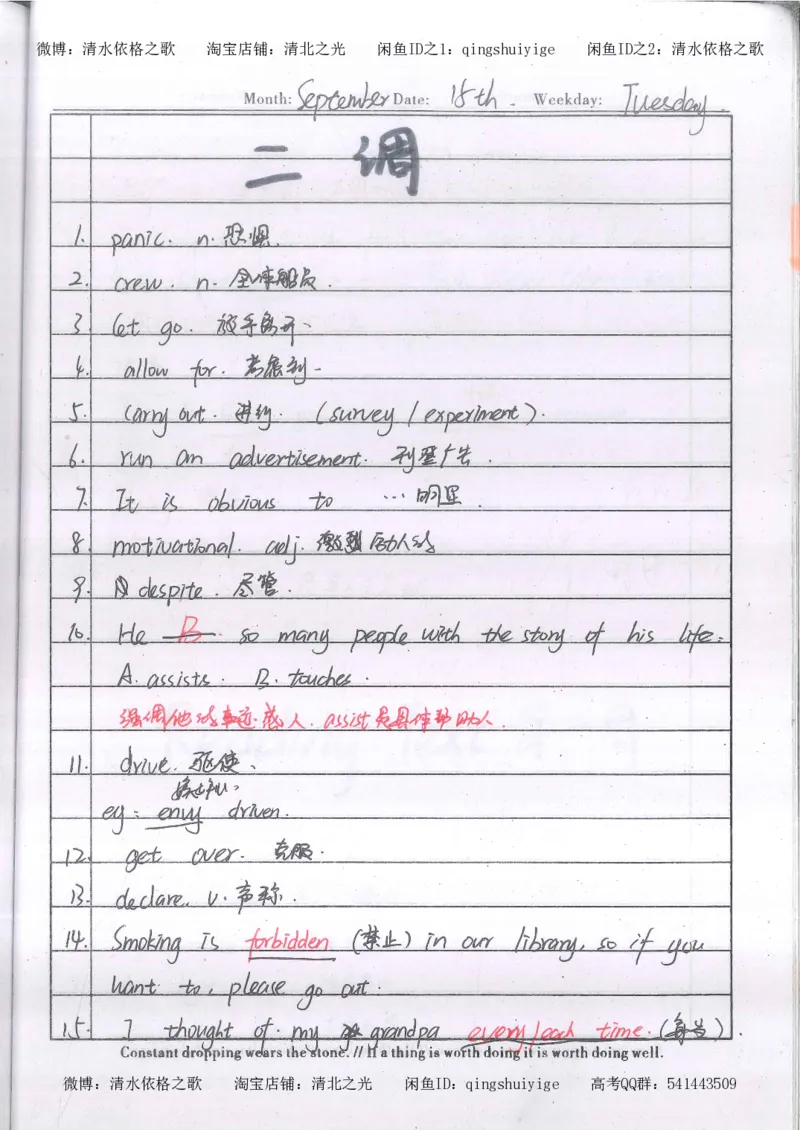 微博：清水依格之歌 淘宝店铺：清北之光 闲鱼ID之1：qingshuiyige 闲鱼ID之2：清水依格之歌
Month: September Date: 15th. Weekday: Tuesday.
二 调
1. panic. n. 恐惧.
2. crew. n. 全体船员.
3. let go. 放手离开.
4. allow for. 考虑到.
5. carry out. 进行. (survey / experiment).
6. run an advertisement. 刊登广告.
7. It is obvious to … 明显.
8. motivational. adj. 激励人的
9. despite. 尽管.
10. He B so many people with the story of his life.
A. assists. B. touches.
强调他的事迹感人. assist是具体帮助人.
11. drive. 驱使.
嫉妒心.
eg: envy driven.
12. get over. 克服.
13. declare. v. 声称.
14. Smoking is forbidden (禁止) in our library, so if you
want to, please go out.
15. I thought of my grandpa every/each time. (每当).
Constant dropping wears the stone. // If a thing is worth doing it is worth doing well.
微博：清水依格之歌 淘宝店铺：清北之光 闲鱼ID：qingshuiyige 高考QQ群：541443509